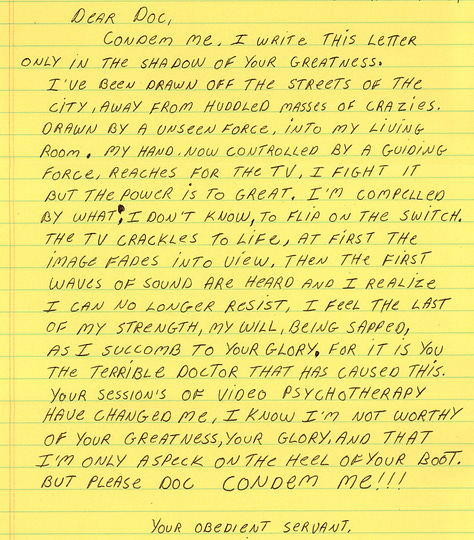 DEAR DOC,
CONDEM ME, I WRITE THIS LETTER
ONLY IN THE SHADOW OF YOUR GREATNESS.
I'VE BEEN DRAWN OFF THE STREETS OF THE
CITY, AWAY FROM HUDDLED MASSES OF CRAZIES.
DRAWN BY A UNSEEN FORCE, INTO MY LIVING
ROOM. MY HAND. NOW CONTROLLED BY A GUIDING
FORCE, REACHES FOR THE TV, I FIGHT IT
BUT THE POWER IS TO GREAT. I'M COMPELLED
BY WHAT, I DON'T KNOW, TO FLIP ON THE SWITCH.
THE TV CRACKLES TO LIFE, AT FIRST THE
IMAGE FADES INTO VIEW, THEN THE FIRST
WAVES OF SOUND ARE HEARD AND I REALIZE
I CAN NO LONGER RESIST, I FEEL THE LAST
OF MY STRENGTH, MY WILL, BEING SAPPED,
AS I SUCCOMB TO YOUR GLORY, FOR IT IS YOU
THE TERRIBLE DOCTOR THAT HAS CAUSED THIS.
YOUR SESSION'S OF VIDEO PSYCHOTHERAPY
HAVE CHANGED ME, I KNOW I'M NOT WORTHY
OF YOUR GREATNESS, YOUR GLORY, AND THAT
I'M ONLY A SPECK ON THE HEEL OF YOUR BOOT.
BUT PLEASE DOC CONDEM ME!!!
YOUR OBEDIENT SERVANT,